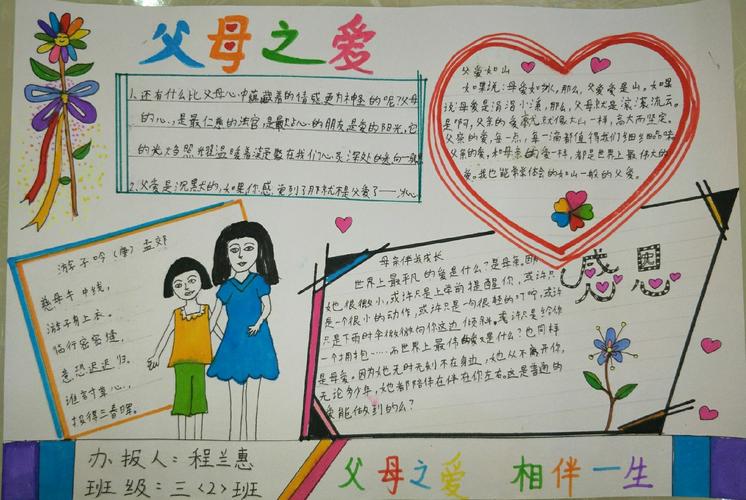 父母之爱
1、还有什么比父母心中蕴藏着的情感更为神圣的呢?父母
的心,是最仁慈的法官,是最贴心的朋友,是爱的阳光,它
的光焰照耀温暖着凝聚在我们心灵深处的意向
2、父爱是沉默的,如果你感觉到了那就不是父爱了——冰心
父爱如山
如果说:母爱如水,那么,父爱是山。如果
说母爱是涓涓小溪,那么,父母就是滚滚流云。
是啊,父亲的爱就像大山一样,高大而坚定。
父亲的爱,每一点,每一滴都值得我们细细品味
父亲的爱,和母亲的爱一样,都是世界上最伟大的
爱。我也能常常体会的如山一般的父爱。
游子吟(唐)孟郊
慈母手中线,
游子身上衣。
临行密密缝,
意恐迟迟归。
谁言寸草心,
报得三春晖。
母亲伴我成长
世界上最平凡的爱是什么?是母爱。因为
她很微小,或许只是上学前提醒你,或许
是一个很小的动作,或许只是一句很轻的叮咛,或许
只是下雨时伞微微向你这边倾斜。或许只是给你
一个拥抱……世界上最伟的爱是什么?也同样
是母爱。因为她无时无刻不在身边,她也从不离开你,
无论多少年,她都陪伴在你左右。这是普通的
爱能做到的么?
感恩
办报人:程兰惠
班级:三〈2〉班
父母之爱 相伴一生